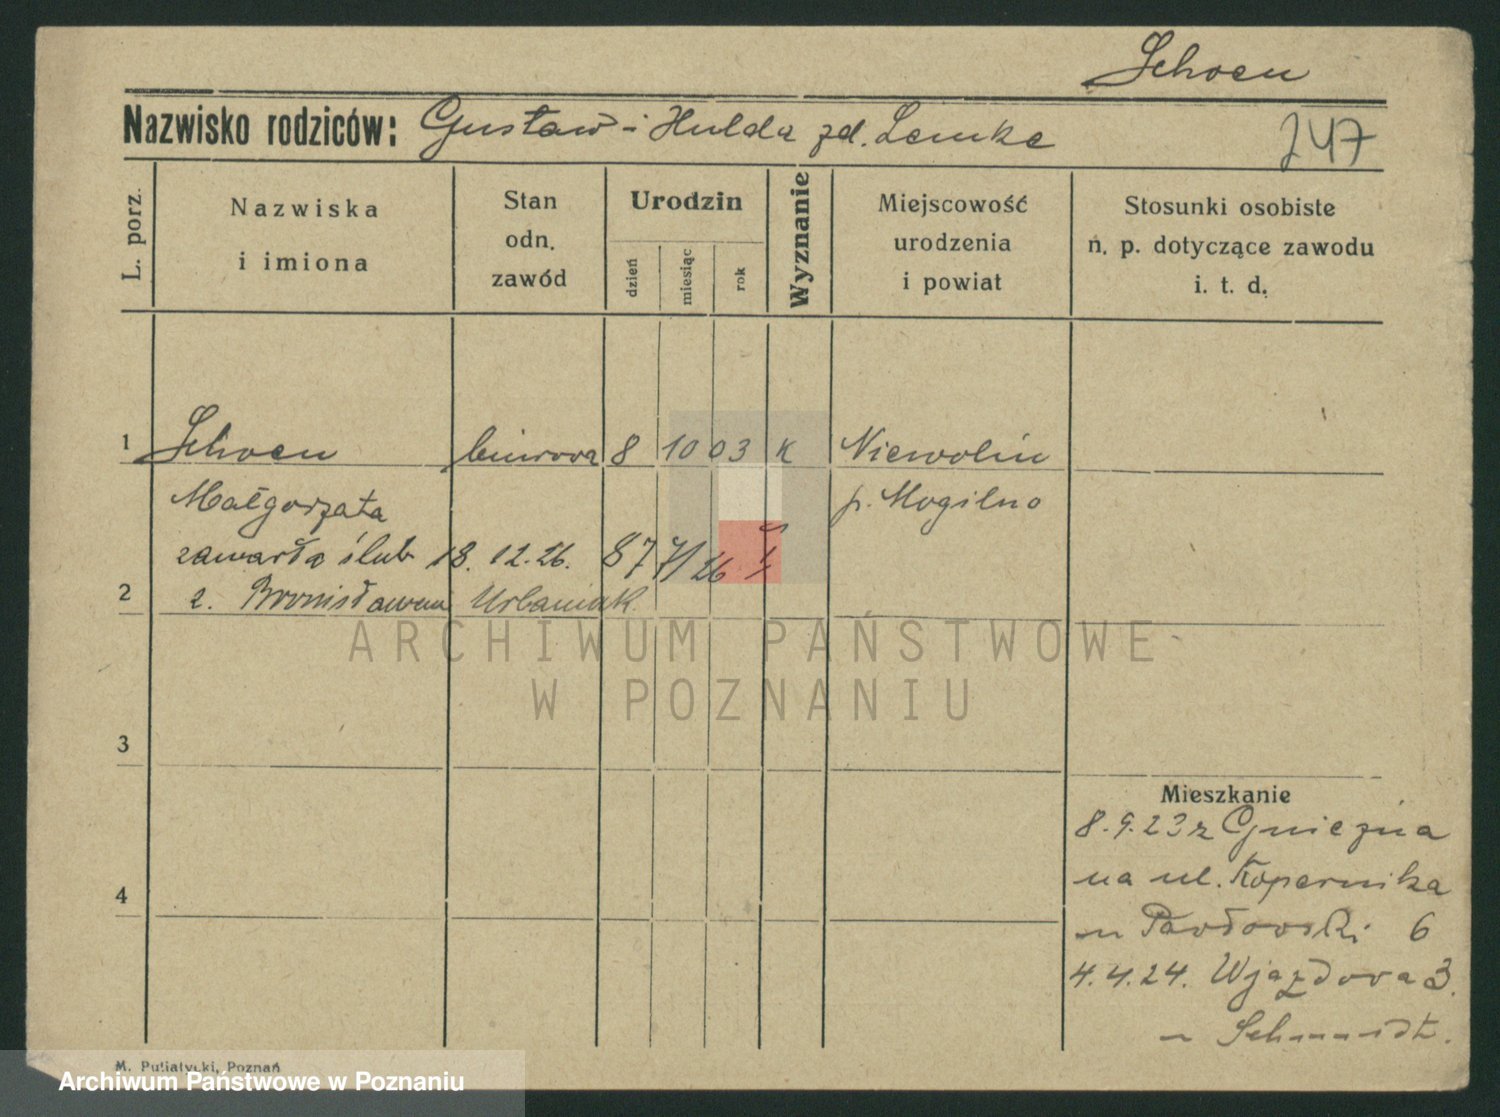 Schoen
Nazwisko rodziców: Gustaw i Hulda zd. Lemke
247
L. porz.
Nazwiska
i imiona
Stan
odn.
zawód
Urodzin
dzień
miesiąc
rok
Wyznanie
Miejscowość
urodzenia
i powiat
Stosunki osobiste
n. p. dotyczące zawodu
i. t. d.
1 Schoen biurowa 8 10 03 K Niewolin
Małgorzata p. Mogilno
zawarła ślub 18. 12. 26. 877/26
2 z. Bronisławem Urbaniak
ARCHIWUM PAŃSTWOWE
W POZNANIU
3
4
Mieszkanie
8.9.23 z Gniezna
na ul. Kopernika
6
4.4.24. Wjazdowa 3.
Schmidt.
M. Putiatycki, Poznań
Archiwum Państwowe w Poznaniu